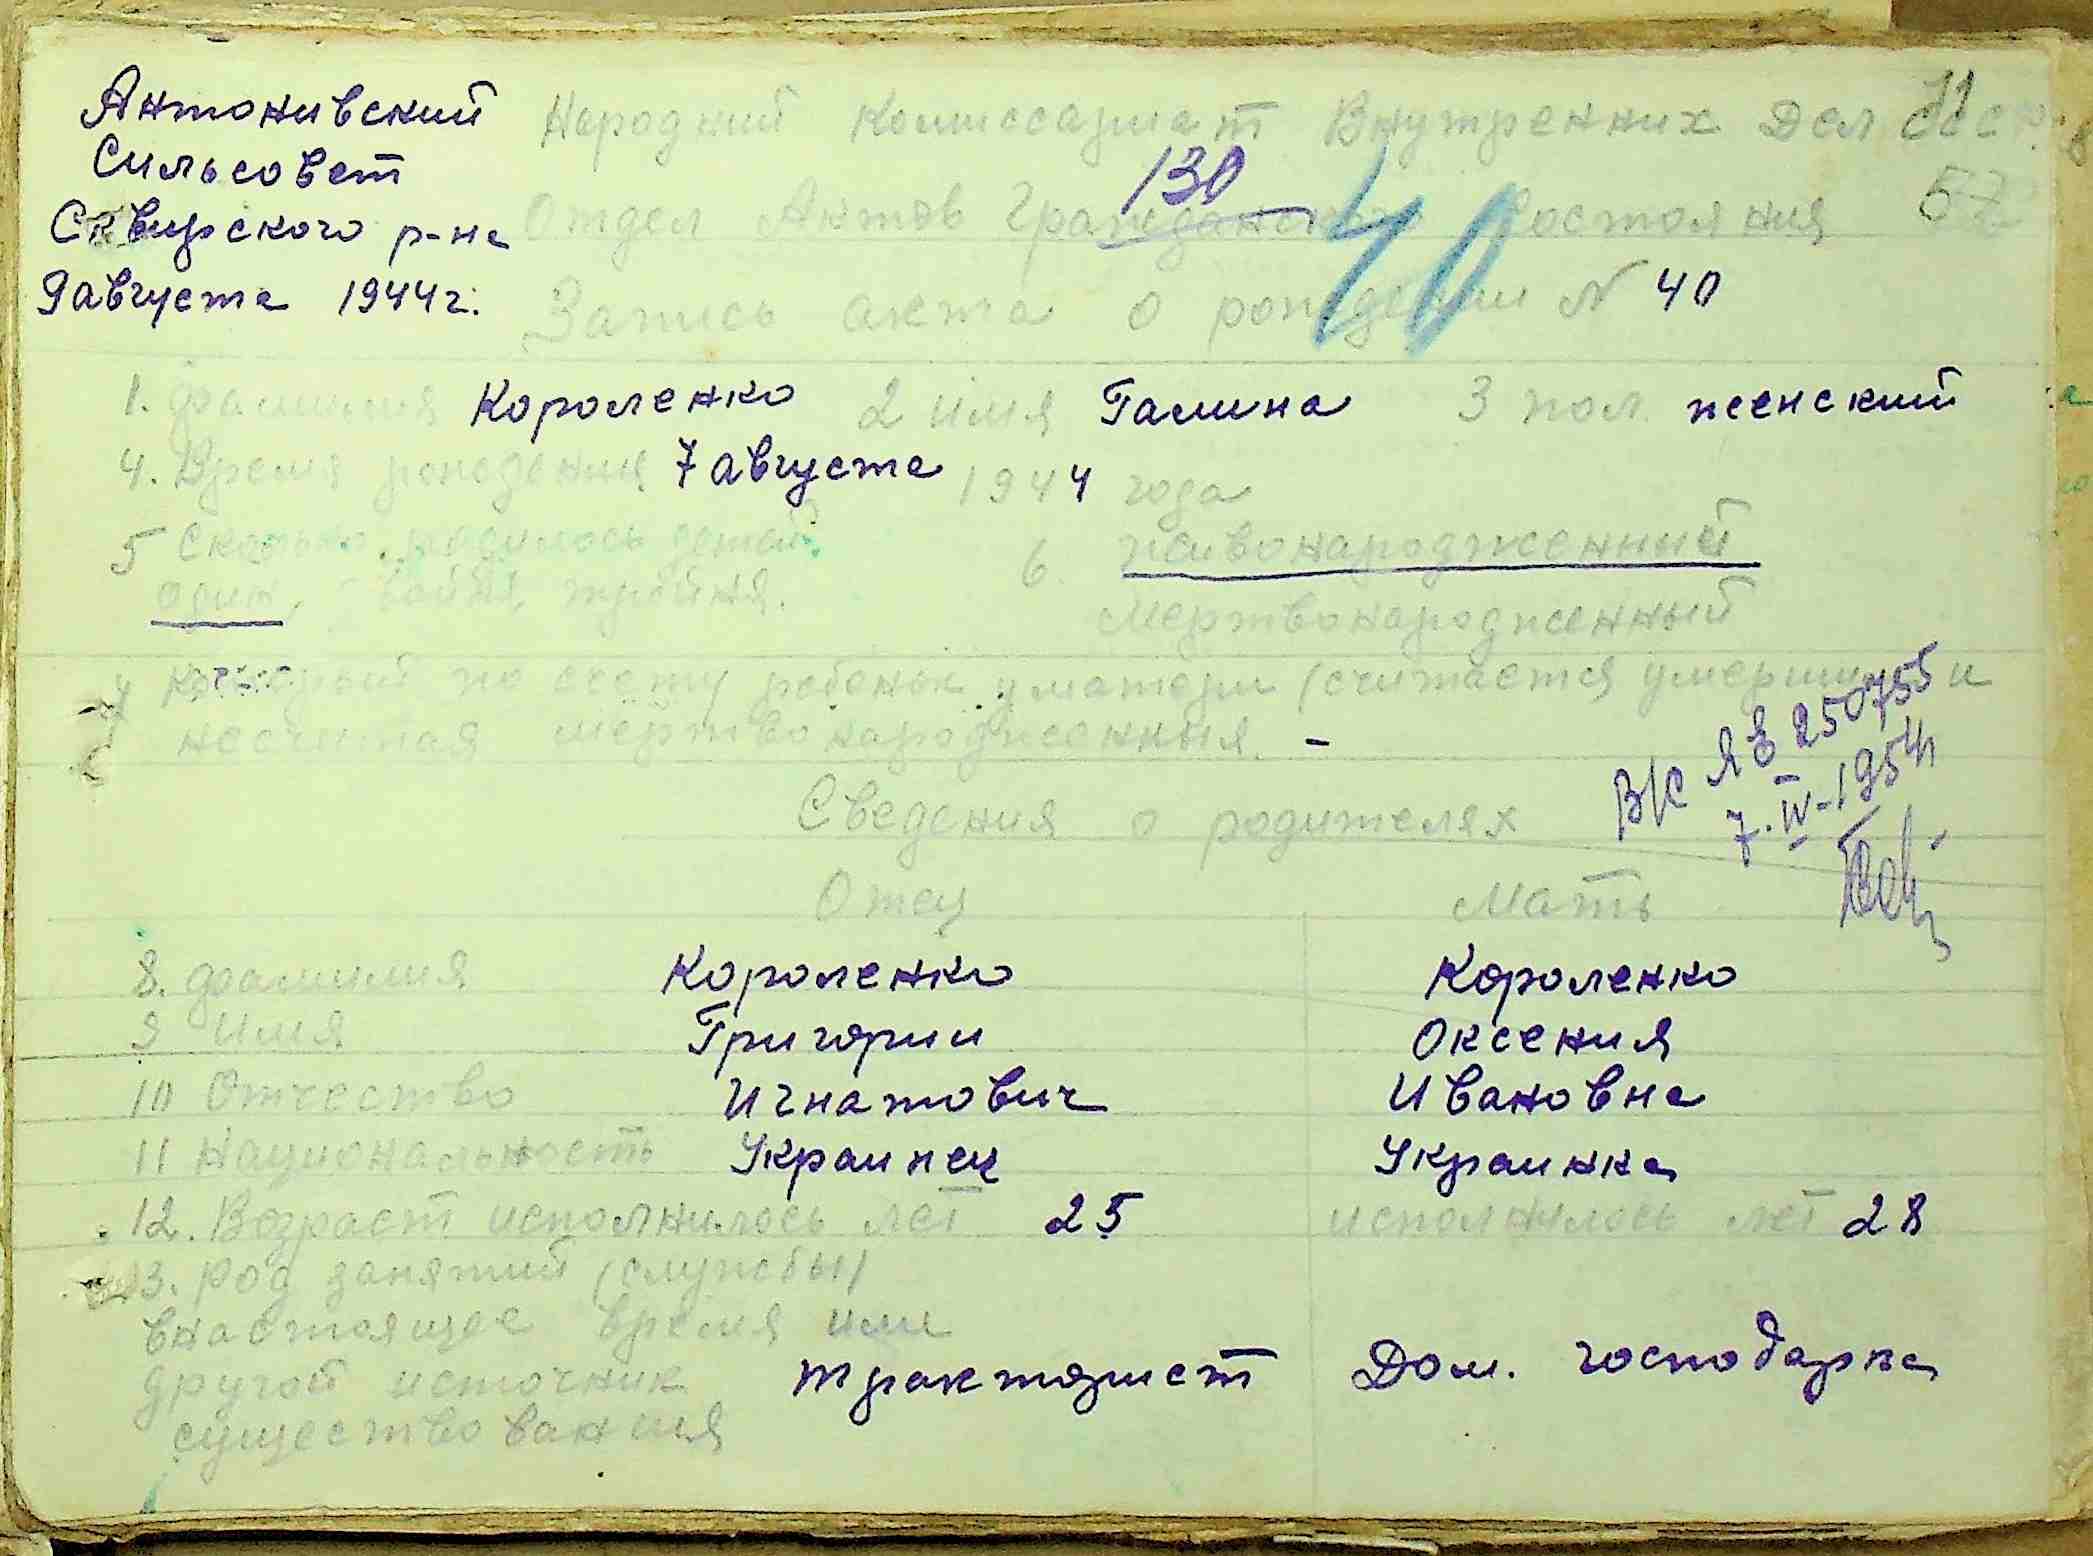 Антонивский
Сильсовет
Сквирского р-на
9 августа 1944 г.
71
57
Народний Комиссариат Внутренних Дел СССР.
130
Отдел Актов Гражданского Состояния
40
Запись акта о рождении N 40
1. фамилия Короленко 2 имя Галина 3 пол. женский
4. Время рождения 7 августа 1944 года
5 Сколько родилось детей 6. живонародженный
один, двойня, тройня. мертвонародженный
7 который по счету ребенок у матери (считается умерших и
несчитая мертвонародженныя. -
В/С ЯЕ 250755
7.IV-1954
Сведения о родителях
Отец Мать
8. фамилия Короленко Короленко
9 Имя Григории Оксения
10 Отчество Игнатович Ивановна
11 Национальность Украинец Украинка
12. Возраст исполнилось лет 25 исполнилось лет 28
13. Род занятий (службы)
внастоящее время или
другой источник трактарист Дом. господарка
существования